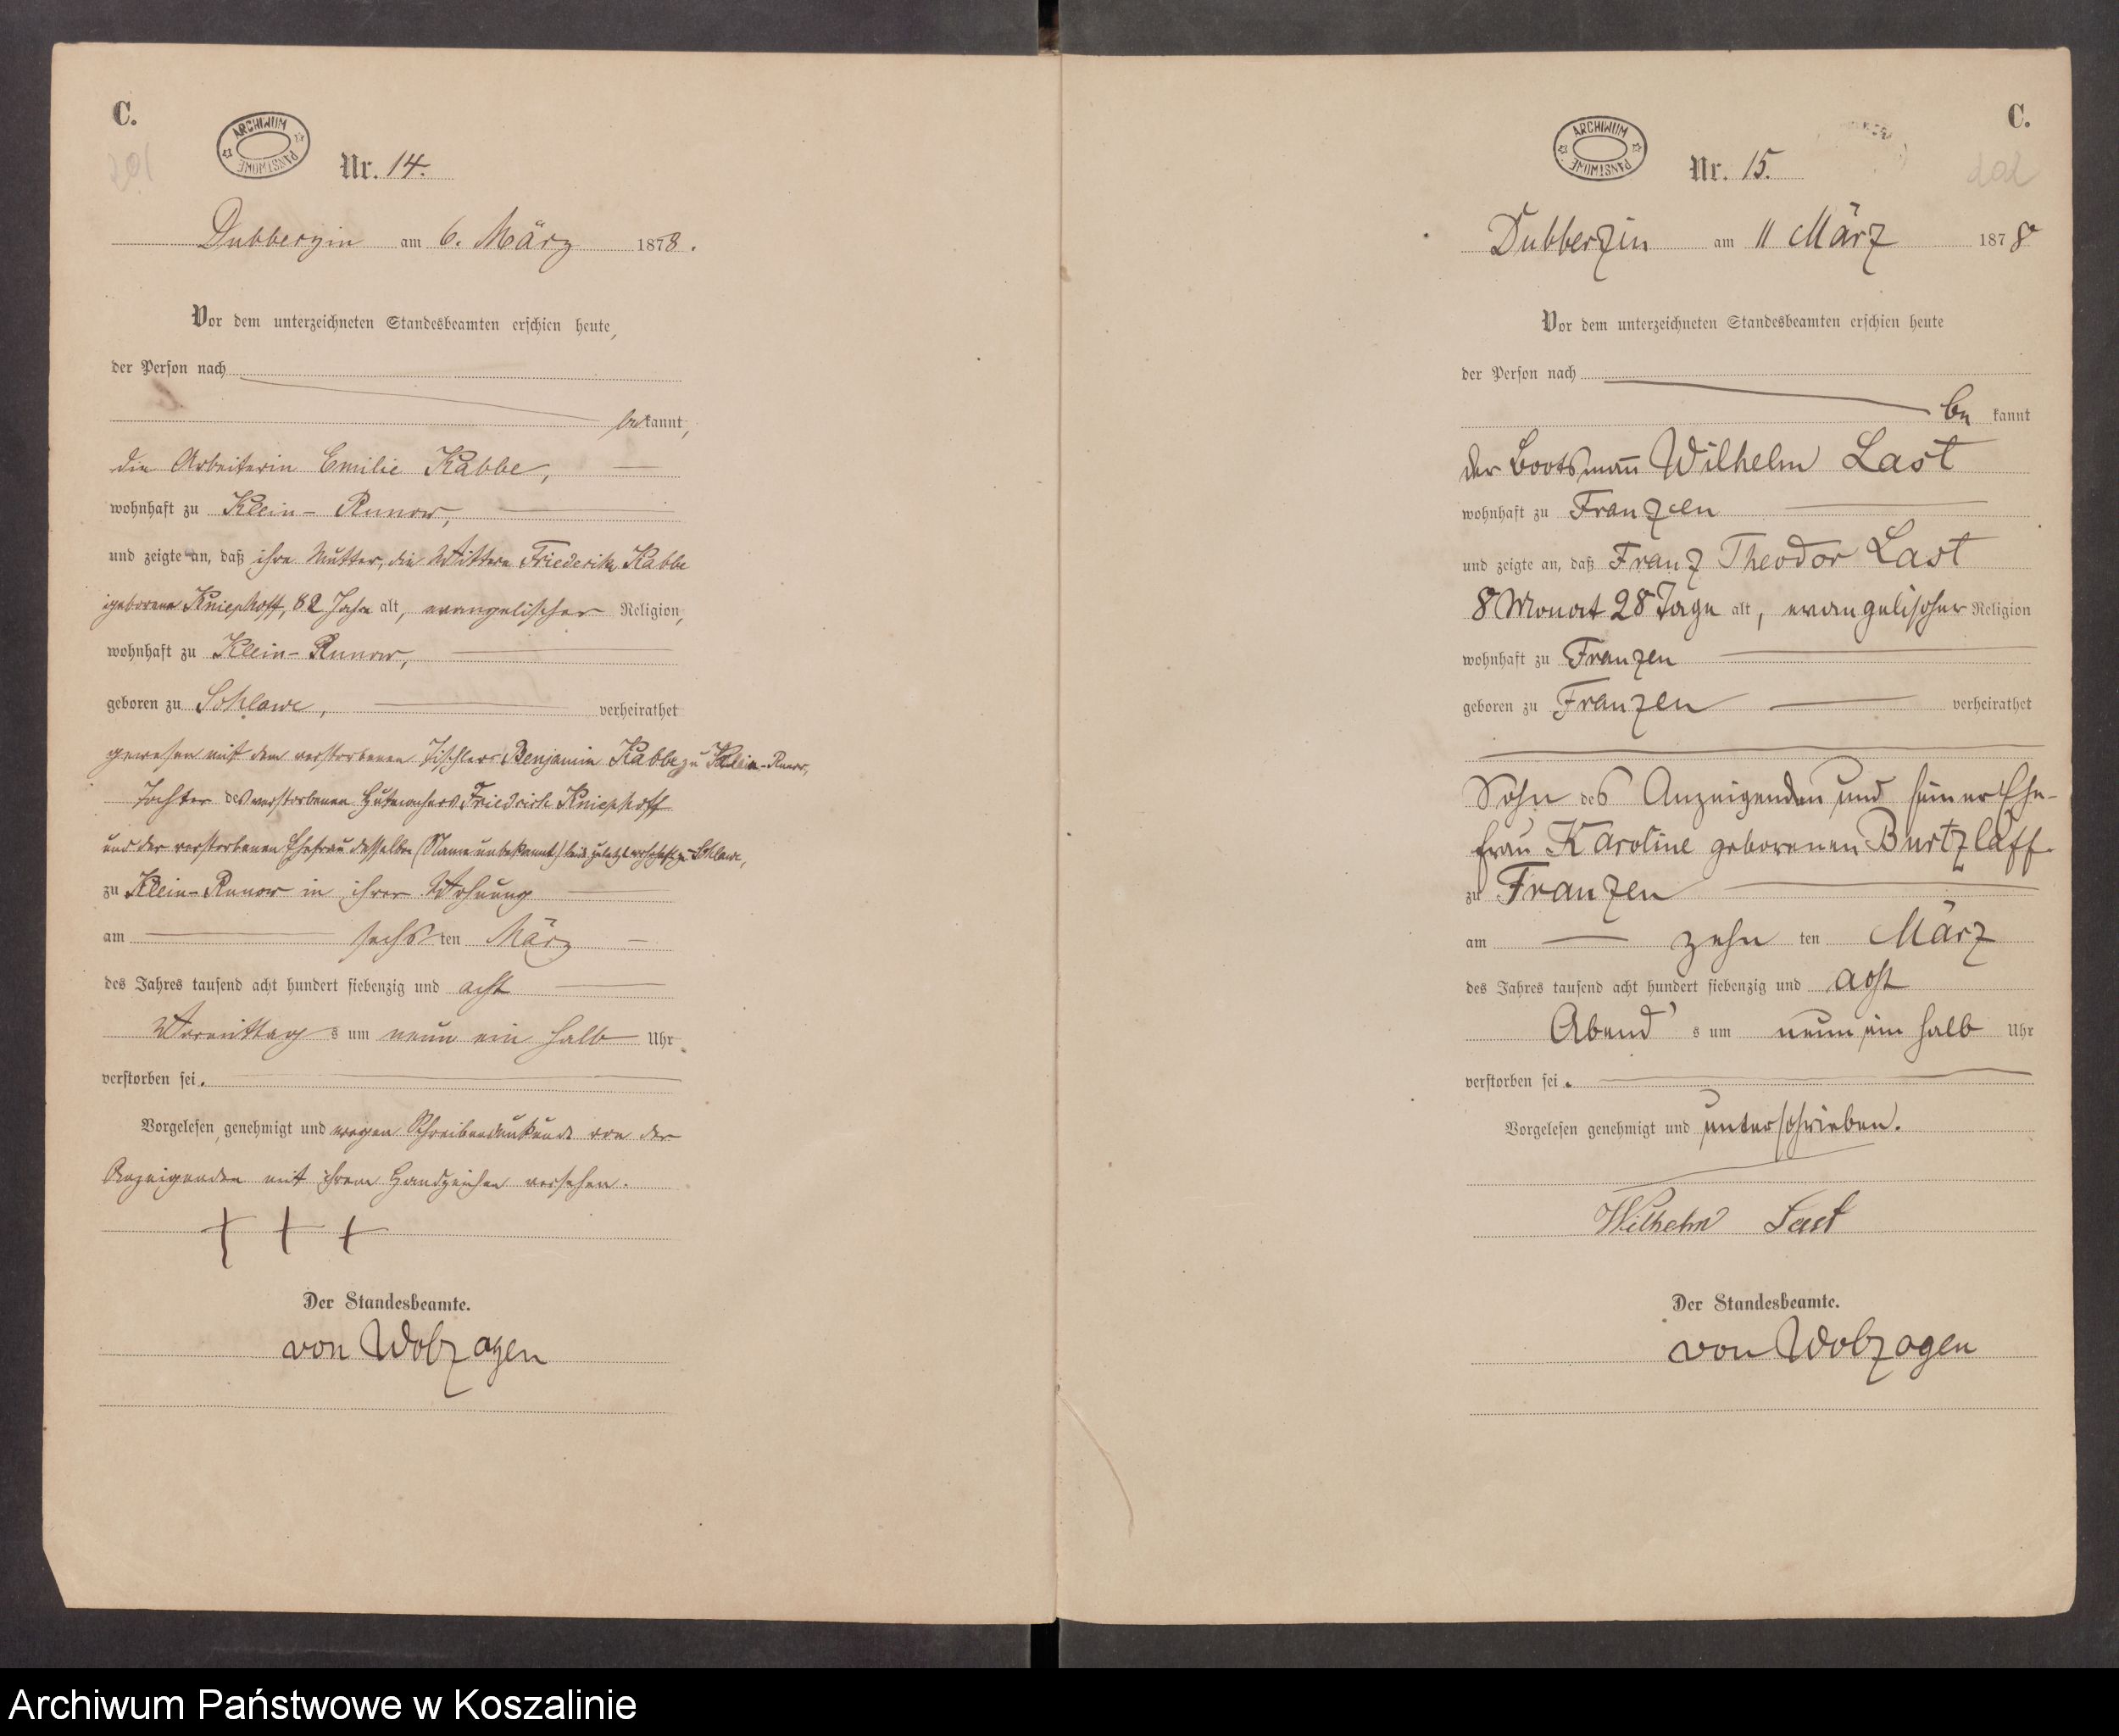 C.
ARCHIWUM PAŃSTWOWE
201
Nr. 14.
Dubberzin am 6. März 1878.
Vor dem unterzeichneten Standesbeamten erschien heute,
der Person nach
bekannt,
die Arbeiterin Emilie Kabbe,
wohnhaft zu Klein-Runow,
und zeigte an, daß ihre Mutter, die Wittwe Friederike Kabbe
geborene Kniephoff, 82 Jahre alt, evangelischer Religion,
wohnhaft zu Klein-Runow,
geboren zu Schlawe, verheirathet
gewesen mit dem verstorbenen Tischler Benjamin Kabbe zu Klein-Runow,
Tochter des verstorbenen Hutmachers Friedrich Kniephoff
und der verstorbenen Ehefrau desselben (Name unbekannt) beide zuletzt wohnhaft zu Schlawe,
zu Klein-Runow in ihrer Wohnung
am sechsten März
des Jahres tausend acht hundert siebenzig und acht
Vormittags um neun ein halb Uhr
verstorben sei.
Vorgelesen, genehmigt und wegen Schreibensunkunde von der
Anzeigenden mit ihrem Handzeichen versehen.
+ + +
Der Standesbeamte.
von Wolzogen
C.
ARCHIWUM PAŃSTWOWE
202
Nr. 15.
Dubberzin am 11 März 1878
Vor dem unterzeichneten Standesbeamten erschien heute
der Person nach
bekannt
der Bootsmann Wilhelm Last
wohnhaft zu Franzen
und zeigte an, daß Franz Theodor Last
8 Monat 28 Tage alt, evangelischer Religion
wohnhaft zu Franzen
geboren zu Franzen verheirathet
Sohn des Anzeigenden und seiner Ehe-
frau Karoline geborenen Burtzlaff
zu Franzen
am zehnten März
des Jahres tausend acht hundert siebenzig und acht
Abends um neun ein halb Uhr
verstorben sei.
Vorgelesen genehmigt und unterschrieben.
Wilhelm Last
Der Standesbeamte.
von Wolzogen
Archiwum Państwowe w Koszalinie